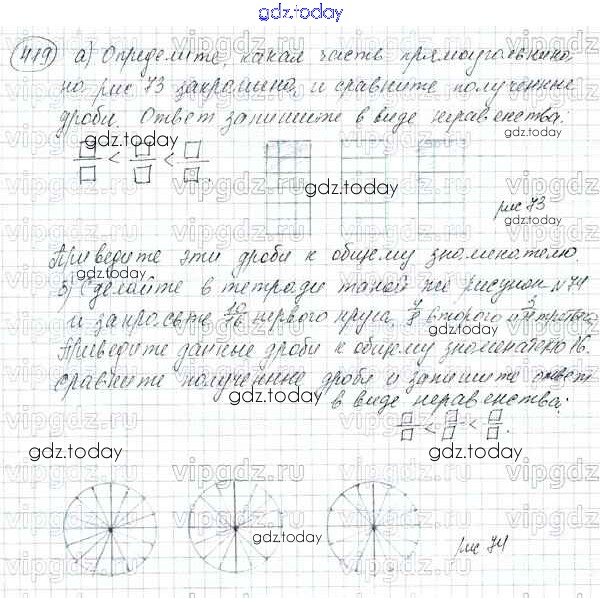 gdz.today
419 а) Определите, какая часть прямоугольника
на рис 73 закрашена, и сравните полученные
дроби. Ответ запишите в виде неравенства.
gdz.today
□/□ < □/□ < □/□.
gdz.today
рис 73
gdz.today
Приведите эти дроби к общему знаменателю.
gdz.today
Сделайте в тетради такой же рисунок №74
и закрасьте 10/16 первого круга, второго и 3/4 третьего
gdz.today
Приведите данные дроби к общему знаменателю 16.
сравните полученные дроби и запишите ответ
gdz.today
в виде неравенства:
□/□ < □/□ < □/□.
gdz.today
gdz.today
gdz.today
рис 74
vipgdz.ru